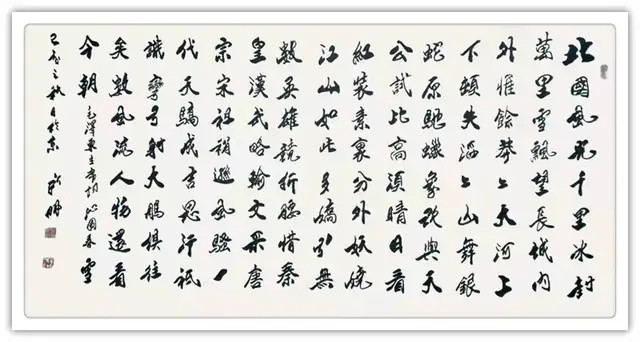 北國風光千里冰封
萬里雪飄望長城内
外惟餘莽々大河上
下頓失滔々山舞銀
蛇原馳蠟象欲與天
公試比高須晴日看
紅裝素裹分外妖嬈
江山如此多嬌引無
數英雄競折腰惜秦
皇漢武略輸文采唐
宗宋祖稍遜風騷一
代天驕成吉思汗祇
識彎弓射大鵰俱往
矣數風流人物還看
今朝 毛澤東主席詞沁園春雪
之秋日於京